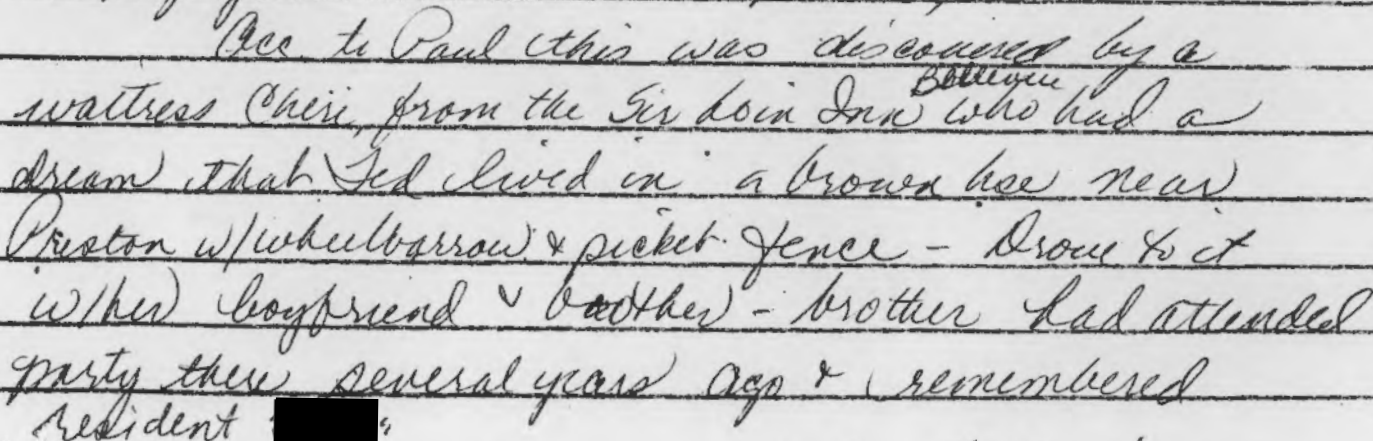 Acc to Paul this was discovered by a
waitress Cheri, from the Sir Loin Inn Bellevue who had a
dream that Ted lived in a brown hse near
Preston w/wheelbarrow & picket fence - Drove to it
w/her boyfriend & brother - brother had attended
party there several years ago & remembered
resident "